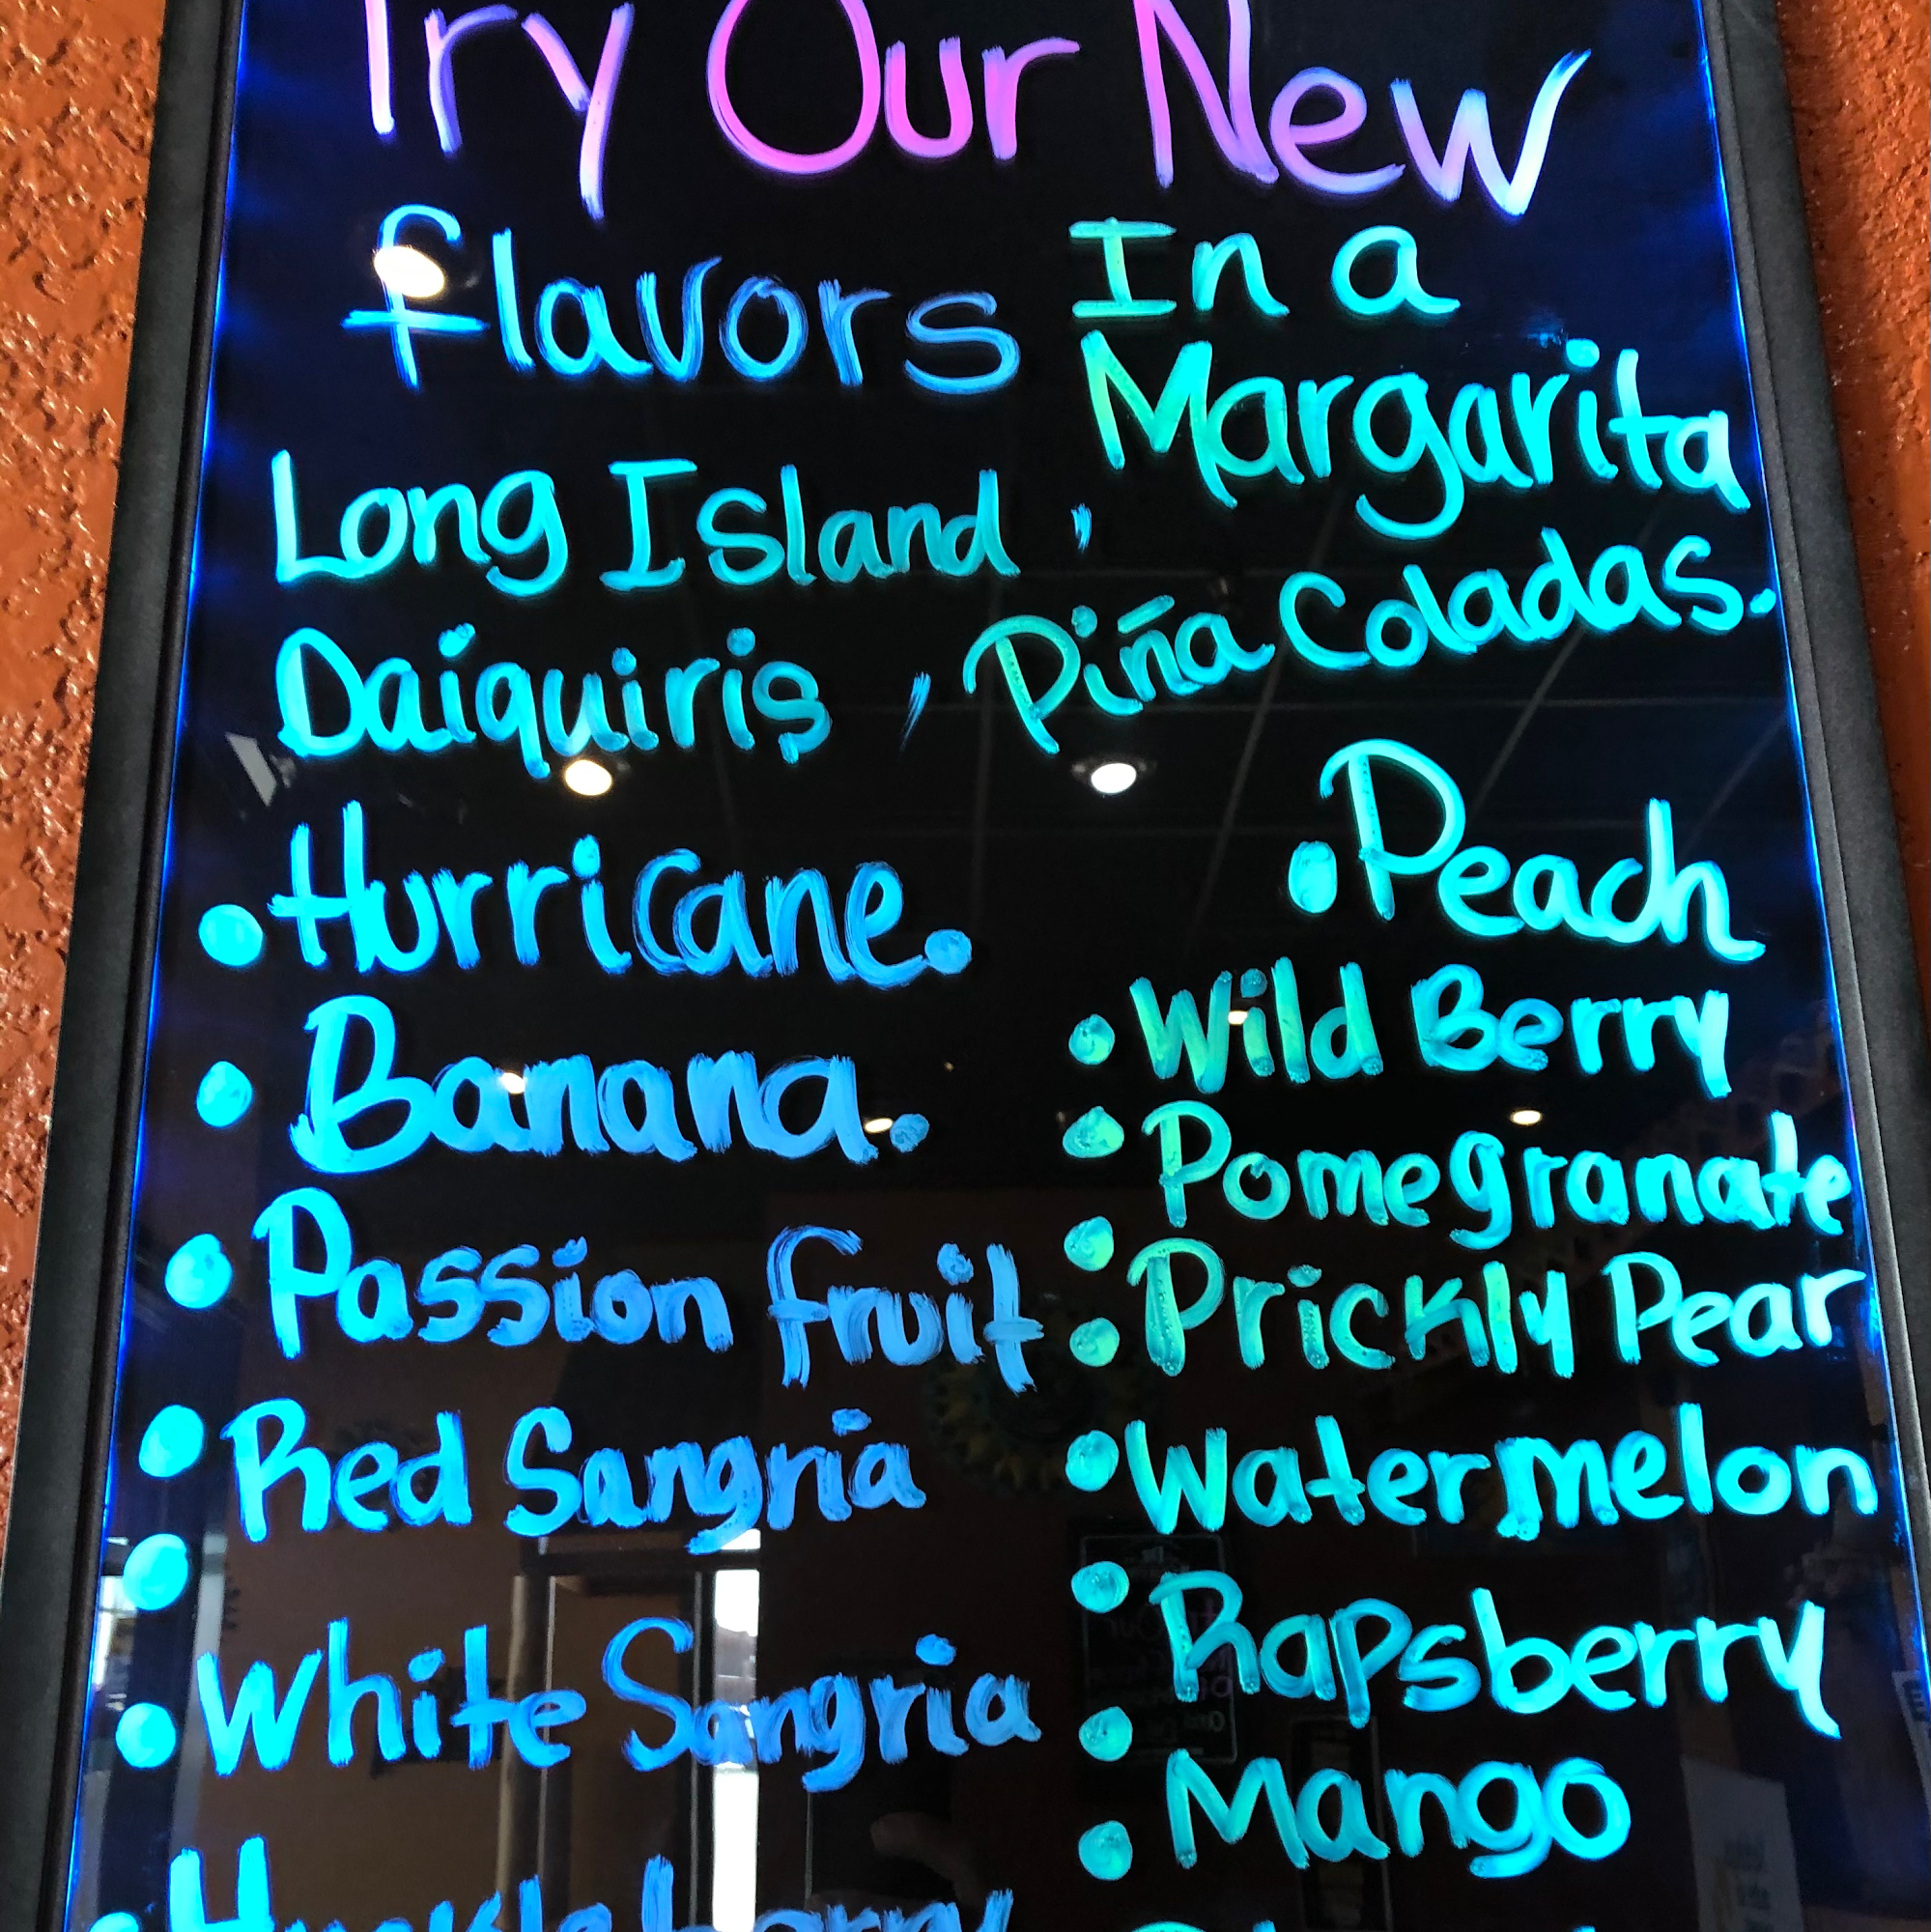 Try Our New
flavors In a
Margarita
Long Island ,
Daiquiris , Piña Coladas.
• Hurricane.
• Banana.
• Passion fruit
• Red Sangria
•
• White Sangria
Huckleberry
• Peach
• Wild Berry
• Pomegranate
•
• Prickly Pear
• Watermelon
• Rapsberry
• Mango
•